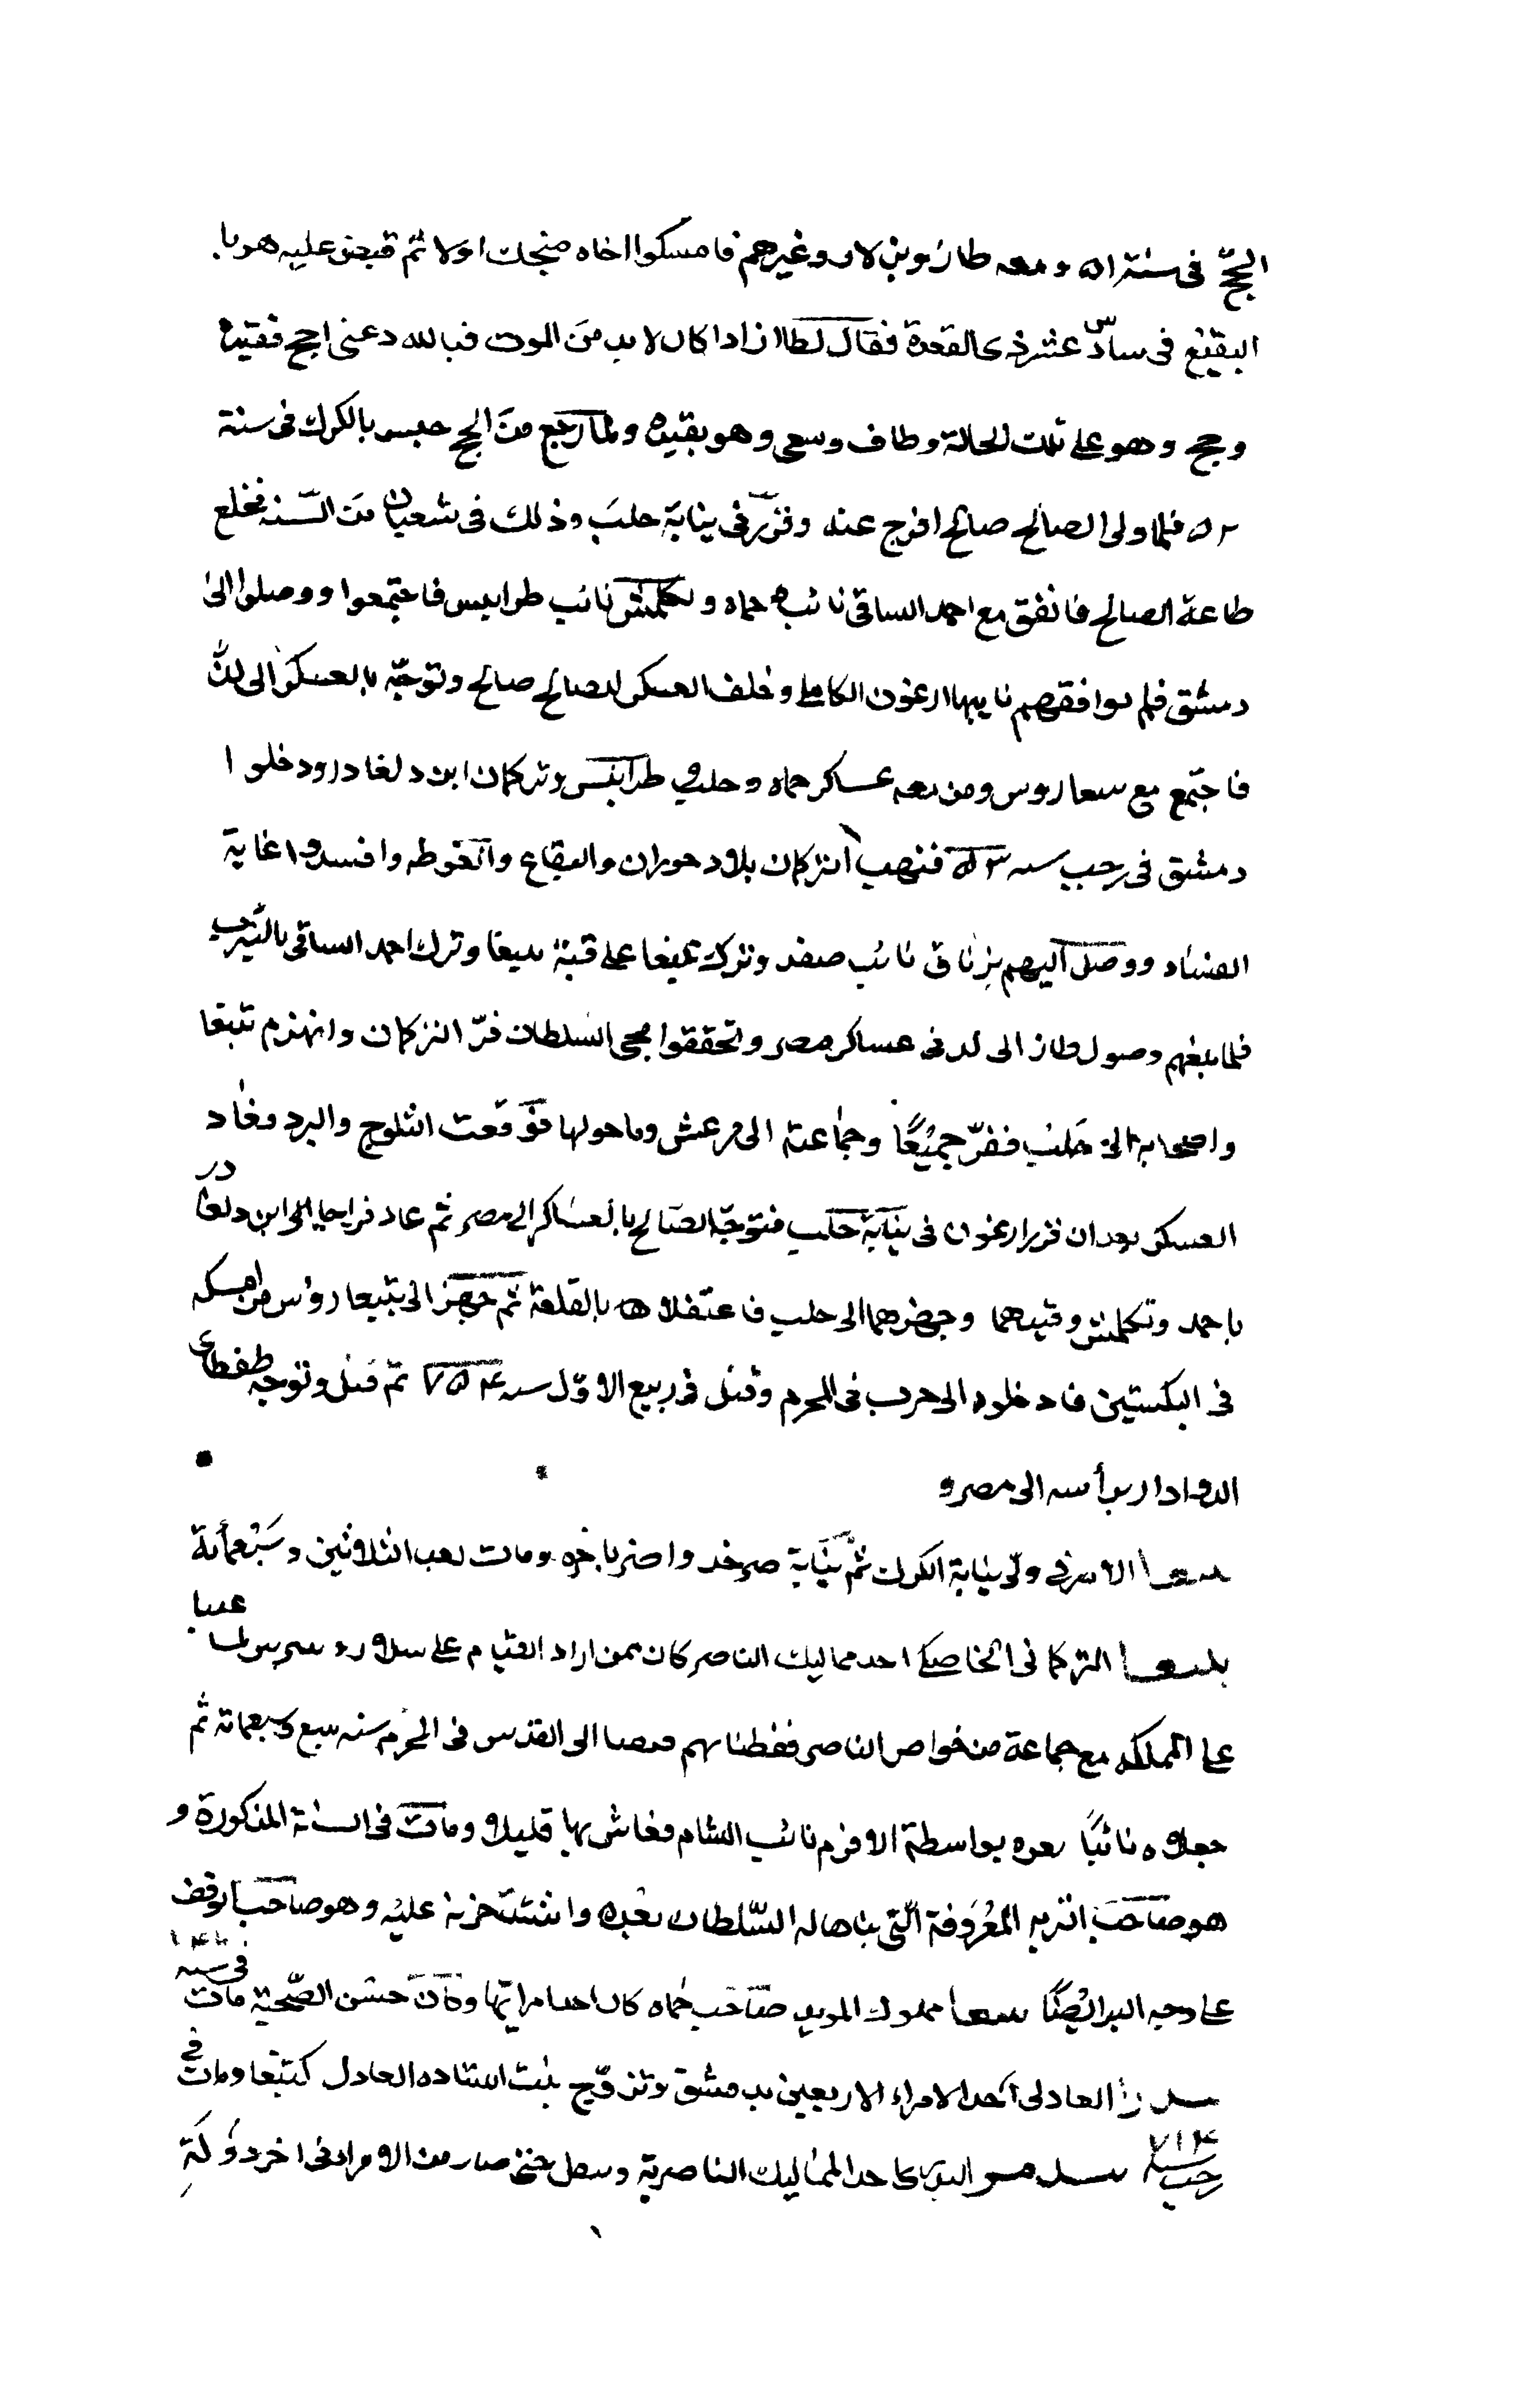 الحجّ فى سنة ٥١ ومعه طاز وبزلار وغيرهم فامسكوا اخاه منجك اولا ثم قبض عليه هو با
لبقيع فى سادس عشر ذى القعدة فقال لطاز اذا كان لا بد من الموت فبالله دعنى احج فقيده
وحج وهو على تلك الحالة وطاف وسعى وهو بقيده ولما رجع من الحج حبس بالكرك فى سنة
٥٢ فلما ولى الصالح صالح افرج عنه وقرر فى نيابة حلب وذلك فى شعبان من السنة فخلع
طاعة الصالح فاتفق مع احمد الساقى نائب حماه وبكلمش نائب طرابلس فاجتمعوا ووصلوا الى
دمشق فلم يوافقهم نايبها ارغون الكاملى وحلف العسكر للصالح صالح وتوجّه بالعسكر الى لد
فاجتمع مع بيبغاروس ومن معه عساكر حماه وحلب وطرابلس وتركمان ابن دلغادر ودخلوا
دمشق فى رجب سنه ٥٣ فنهب التركمان بلاد حوران والبقاع والغوطه وافسدوا غاية
الفساد ووصل اليهم برناق نائب صفد ونزل بيبغا على قبة يلبغا وترك احمد الساقى بالمزيرب
فلما بلغهم وصول طاز الى لد فى عساكر مصر وتحققوا مجى السلطان فرّ التركمان وانهزم بيبغا
واصحابه الى حلب ففرّ جميعًا وجماعته الى مرعش وما حولها فوقعت الثلوج والبرد وعاد
العسكر بعد ان قرر ارغون فى نيابة حلب فتوجّه الصالح بالعساكر الى مصر ثم عاد قراجا الى ابن دلغادر
باحمد وبكلمش وقيدهما وجهزهما الى حلب فاعتقلا بها بالقلعة ثم جهز الى بيبغا روس من امسكه
فى البلستين فادخلوه الى حلب فى المحرم وقتل فى ربيع الاوّل سنه ٧٥٤ ثم قتل وتوجه طقطاى
الدوادار برأسه الى مصر و
بيبغا الاشرفى ولّى نيابة الكرك ثم نيابة صرخد واضر باخره ومات بعد الثلاثين وسبعمأئة
بيبغا التركمانى الخاصكى احد مماليك الناصر كان ممن اراد القيام على سلار و بيبرس لما غلبا
على المملكه مع جماعة من خواص الناصر ففطنا بهم فنفيا الى القدس فى المحرم سنه سبع وسبعمائة ثم
جعلاه نائبًا بغزه بواسطة الافرم نائب الشام فعاش بها قليلا ومات فى السنة المذكورة و
هو صاحب التربه المعروفة الّتى بناها له السّلطان بعده وهو صاحب الوقف
على وجه البر ايضًا بيبغا مملوك المويد صاحب حماه كان احد امرائها وكان حسن الصّحبة مات فى سنه
بيدرا العادلى احد الامراء الاربعين بدمشق وتزوّج بنت استاده العادل كتبغا ومات فى
رجب سنه ٧١٤ بيدمر البدرى احد المماليك الناصرية وتنقل حتى صار من الامراء فى اخر دولة